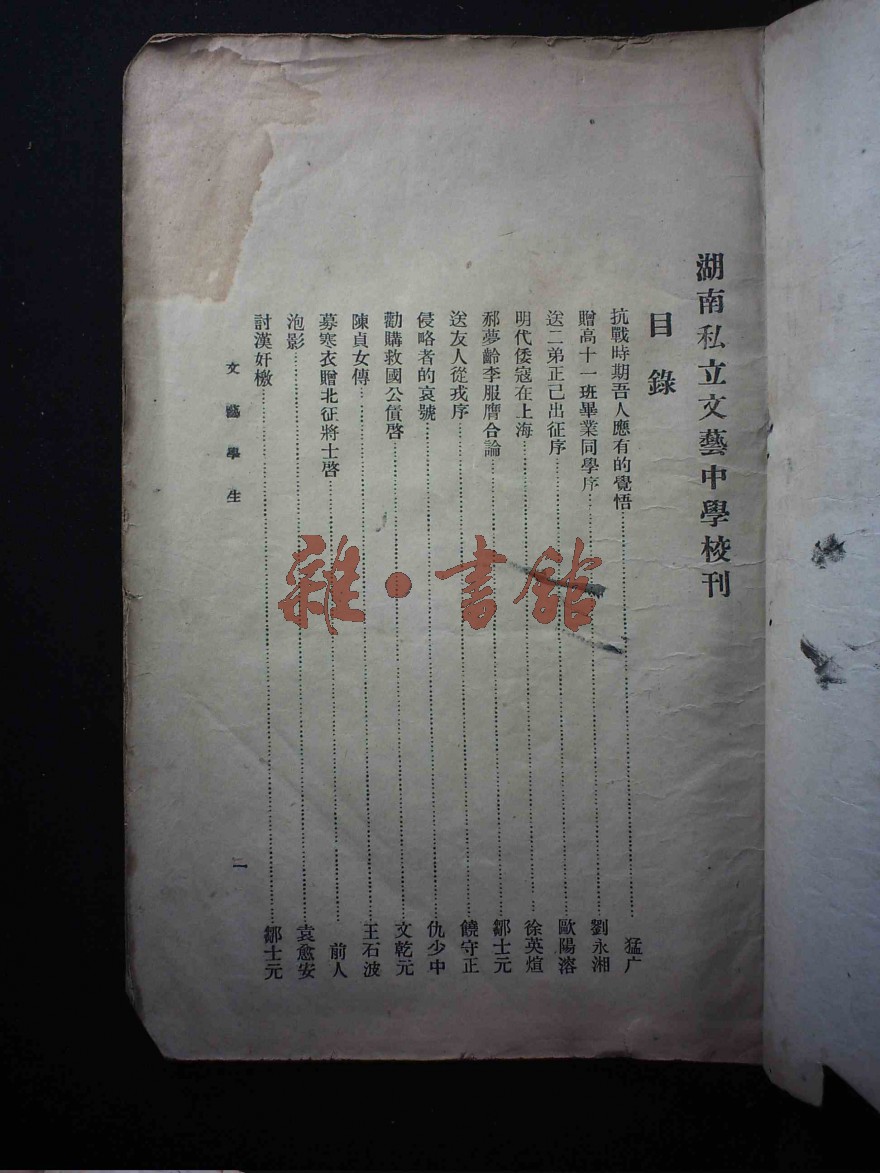 湖南私立文藝中學校刊
目錄
抗戰時期吾人應有的覺悟……猛广
贈高十一班畢業同學序……劉永湘
送二弟正己出征序……歐陽溶
明代倭寇在上海……徐英煊
郝夢齡李服膺合論……鄒士元
送友人從戎序……饒守正
侵略者的哀號……仇少中
勸購救國公債啓……文乾元
陳貞女傳……王石波
募寒衣贈北征將士啓……前人
泡影……袁愈安
討漢奸檄……鄒士元
文藝學生
二
雜·書館